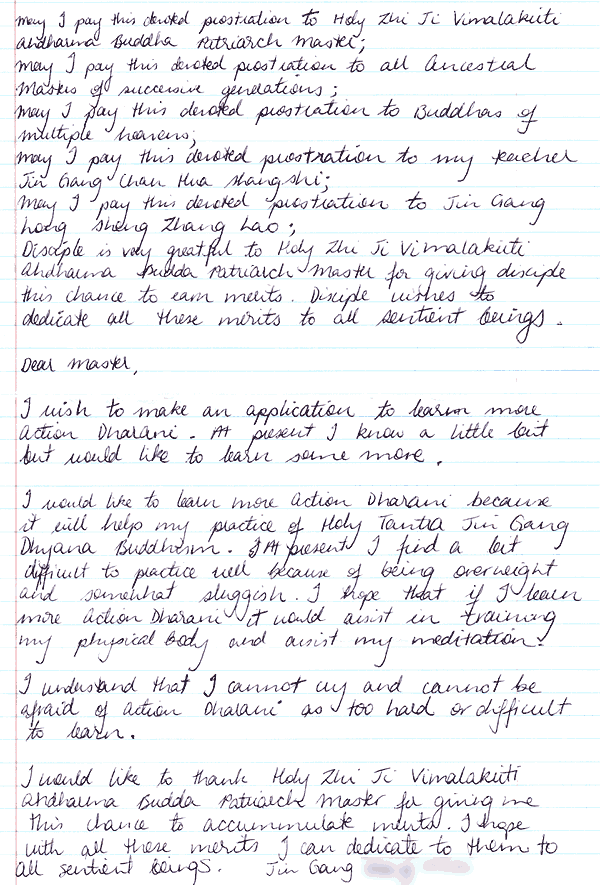 may I pay this devoted prostration to Holy Zhi Ji Vimalakirti
andharma Buddha Patriarch Master;
may I pay this devoted prostration to all Ancestral
Masters of successive generations;
may I pay this devoted prostration to Buddhas of
multiple heavens;
may I pay this devoted prostration to my teacher
Jin Gang Chan Hua Shangshi;
May I pay this devoted prostration to Jin Gang
hong sheng Zhang Lao;
Disciple is very greatful to Holy Zhi Ji Vimalakirti
andharma Budda Patriarch Master for giving disciple
this chance to earn merits. Disciple wishes to
dedicate all these merits to all sentient beings.
Dear Master,
I wish to make an application to learn more
Action Dharani. At present I know a little bit
but would like to learn some more.
I would like to learn more Action Dharani because
it will helps my practice of Holy Tantra Jin Gang
Dhyana Buddhism. At present I find a bit
difficult to practice well because of being overweight
and somewhat sluggish. I hope that if I learn
more Action Dharani it would assist in training
my physical body and assist my meditation.
I understand that I cannot cry and cannot be
afraid of Action Dharani as too hard or difficult
to learn.
I would like to thank Holy Zhi Ji Vimalakirti
andharma Budda Patriarch Master for giving me
this chance to accummulate merits. I hope
with all these merits I can dedicate to them to
all sentient beings. Jin Gang